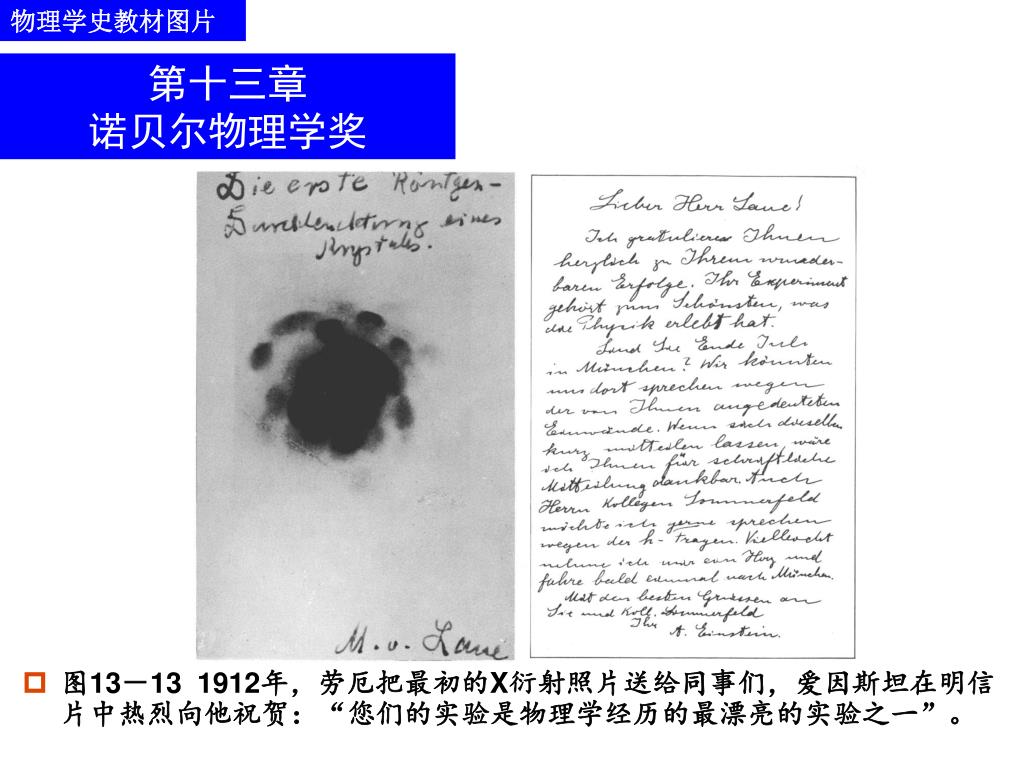 物理学史教材图片
第十三章
诺贝尔物理学奖
Die erste Röntgen-
Durchleuchtung eines
Krystalls.
M. v. Laue
Lieber Herr Laue!
Ich gratuliere Ihnen
herzlich zu Ihrem wunder-
baren Erfolge. Ihr Experiment
gehört zum Schönsten, was
die Physik erlebt hat.
Sind Sie Ende Juli
in München? Wir könnten
uns dort sprechen wegen
der von Ihnen angedeuteten
Einwände. Wenn sich dieselben
kurz mitteilen lassen, wäre
ich Ihnen für schriftliche
Mitteilung dankbar. Auch
Herrn Kollegen Sommerfeld
möchte ich gerne sprechen
wegen der h-Fragen. Vielleicht
nehme ich mir ein Herz und
fahre bald einmal nach München.
Mit den besten Grüssen an
Sie und Koll. Sommerfeld
Ihr
A. Einstein.
图13－13 1912年，劳厄把最初的X衍射照片送给同事们，爱因斯坦在明信
片中热烈向他祝贺：“您们的实验是物理学经历的最漂亮的实验之一”。